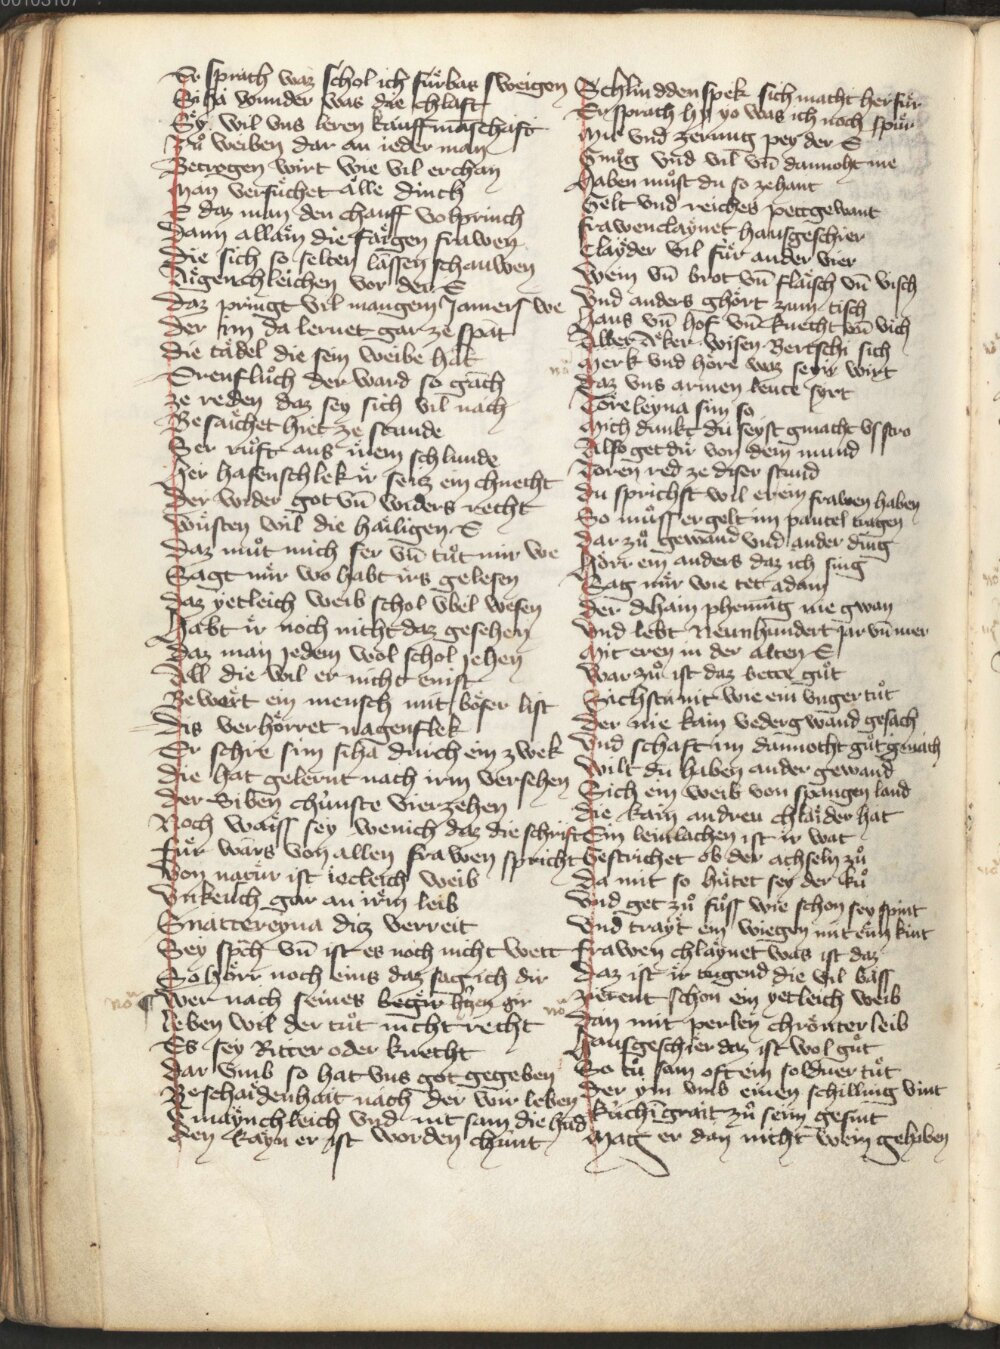 Er sprach waz schol ich fürbas sweigen
Siha wunder was die chlaft
Sey wil vns leren kauffmāschaft
Zuͦ weiben dar an ieder man
Betrogen wirt wie vil er chan
Man versuͤchet alle dinch
E daz man den chauff volprinch
Dann allaͤin die faigen frawen
Die sich so selten lassen schauwen
Aigenchleichen vor der E
Daz pringt vil mangem Jamers we
Der im da lernet gar ze spat
Die taͤdel die sein weibe hat
Erenfluͦch der ward so gach
ze reden daz sey sich vil nach
Besaͤichet hiet ze stunde
Ser ruͤft aus irem schlunde
Her hafenschlek ir seitz ein chnecht
Der wider got vn̄ widers recht
Wuͤsten wil die haͤiligen E
Daz muͤt mich ser vn̄ tuͦt mir we
Sagt mir wo habt irs gelesen
Daz yetleich weib schol vbel wesen
Habt ir noch nicht daz gesehen
Daz man jedem wol schol jehen
All die wil er nicht enist
Bewaͤrt ein mensch mit boͤser list
Dis verhoͤrret nagenflek
Er schre sim siha durch ein zwek
Die hat gelernt nach irm versehen
Der Siben chuͤnste vierzehen
Noch waͤiss sey wenich daz die schrift
Fuͤr wars von allen frawen spricht
Von natuͤr ist iecleich weib
Vnkeuch gar an irm leib
Snattereyna ditz verreit
Sey sp̄ch vn̄ ist es noch nicht wett
So hoͤrr noch eins daz sag ich dir
Wer nach seines begir hˀtzen gir
Leben wil der tuͦt nicht recht
Es sey Ritter oder knecht
Dar vmb so hat vns got gegeben
Beschaidenhait nach der wir leben
Emaͤynchleich vnd nit sam die hund
Den kayn er ist worden chunt
Schlindden spek sich macht her fuͤr
Er sprach hy yo was ich noch spuͤr
Mit vnd zerung pey der E
Gnuͦg vnd vil vn̄ dannoht me
Haben muͤst du so zehant
Gelt vnd reiches pettgewant
Frawenclaynet hausgeschier
Claͤyder vil fuͤr ander vier
Wein vn̄ brot vn̄ flaͤisch vn̄ visch
Vnd anders ghoͤrt zum tisch
Haus vn̄ hof vn̄ knecht vn̄ vich
Aker wisen Bertschi sich
Merk vnd hoͤre waz
Daz vns armen leute
Toͤreleyna sim so
Mich dunkt du seyst gmacht vss stro
Also get dir von dem mund
Toren red ze diser stund
Du sprichst wil er ein frawen haben
So muͦss er gelt im pautel tragen
Dar zuͦ gewand vnd ander ding
Hoͤrr ein anders daz ich sing
Sag mir wie tet adam
Der dehain phenning nie gwan
Vnd lebt Neunhundert jar vn̄ mer
Mit eren in der alten E
War zuͦ ist daz bette guͦt
Sichstu nit wie ein vnger tuͦt
Der nie kain vedergwand gesach
Vnd schaft im dannocht guͦt gemach
Wilt du haben ander gewand
Sich ein weib von spangen land
Die kain andreu chlaider hat
Ein leinlachen ist ir wat
Gestrichet ob der achseln zuͦ
Da mit so huͤtet sey der kuͦ
Vnd get zuͦ fuͦss wie schon sey spint
Vnd traͤyt ein wiegen mit eim kint
Frawen chlaynet was ist daz
Daz ist ir tugend die vil bass
zierent schon ein yetleich weib
Dan mit perlen chroͤnter leib
Hausgeschier daz ist wol guͦt
So tuͦ sam oft ein soldner tuͦt
Der ym vmb einen schilling vint
Kuchī grait zuͦ seim gesint
Mag er dan nicht wein gehaben